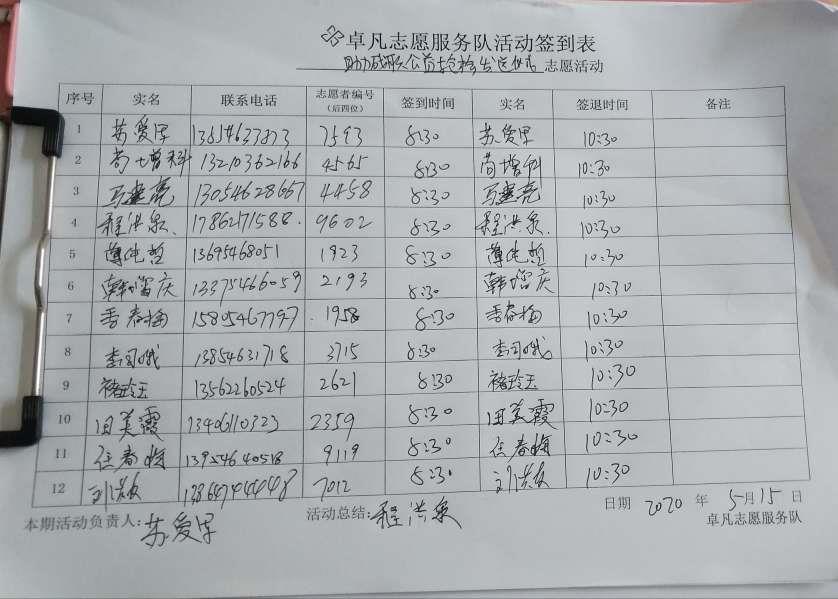 卓凡志愿服务队活动签到表
志愿活动
序号 实名 联系电话 志愿者编号(后四位) 签到时间 实名 签退时间 备注
1 苏爱军 7593 8:30 苏爱军 10:30
2 尚增科 13210362166 4565 8:30 尚增科 10:30
3 马建亮 13054628667 4458 8:30 马建亮 10:30
4 程洪泉 17862171588 9602 8:30 程洪泉 10:30
5 13695468051 1923 8:30 10:30
6 韩增庆 13375466059 2193 8:30 韩增庆 10:30
7 季春梅 1958 8:30 季春梅 10:30
8 李同娥 13854631718 3715 8:30 李同娥 10:30
9 褚玲玉 13562260524 2621 8:30 褚玲玉 10:30
10 田美霞 13406110323 2359 8:30 田美霞 10:30
11 任春梅 13954640518 9119 8:30 任春梅 10:30
12 13864744448 7012 8:30 10:30
日期 2020 年 5月15日
本期活动负责人: 苏爱军 活动总结: 程洪泉 卓凡志愿服务队